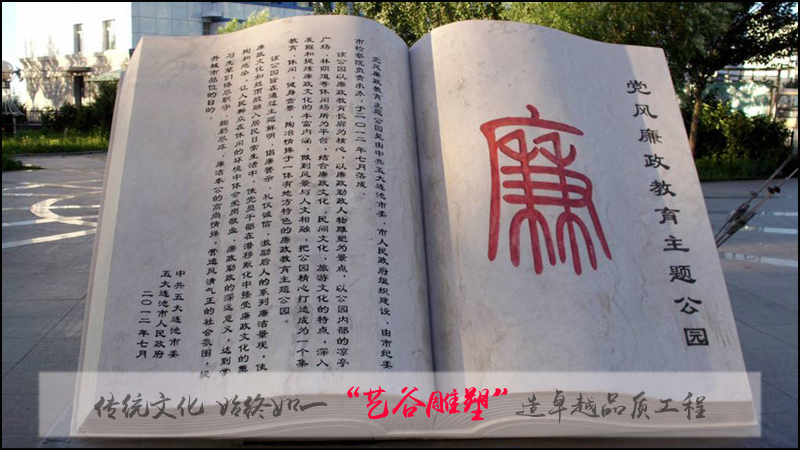 党风廉政教育主题公园
廉
党风廉政教育主题公园是由中共五大连池市委、市人民政府组织建设,由市纪委、
市检察院负责承办,于二〇一二年七月落成。
该公园以廉政教育长廊为核心,以廉政勤政人物雕塑为景点,以公园内部的凉亭、
广场、林荫道等休闲场所为平台,结合廉政文化、民间文化、旅游文化的特点,深入
发掘和提炼廉政文化的丰富内涵,做到风景与人文相融,把公园精心打造成为一个集
教育、休闲、健身、赏景、陶冶情操于一体有地方特色的廉政教育主题公园。
该公园旨在通过主题鲜明、倡廉警示、礼仪诚信、激励后人的系列廉洁景观,使
廉政文化如丝雨般融入居民日常生活中,使党员干部在潜移默化中接受廉政文化的熏
陶和感染,让人民群众在休闲的环境中体会爱岗敬业、廉政勤政的深远意义,达到学
习先辈们恪尽职守、鞠躬尽瘁、廉洁奉公的高尚情操,营造风清气正的社会氛围,提
升城市品位的目的。
中共五大连池市委
五大连池市人民政府
二〇一二年七月
传统文化 始终如一“艺谷雕塑”造卓越品质工程